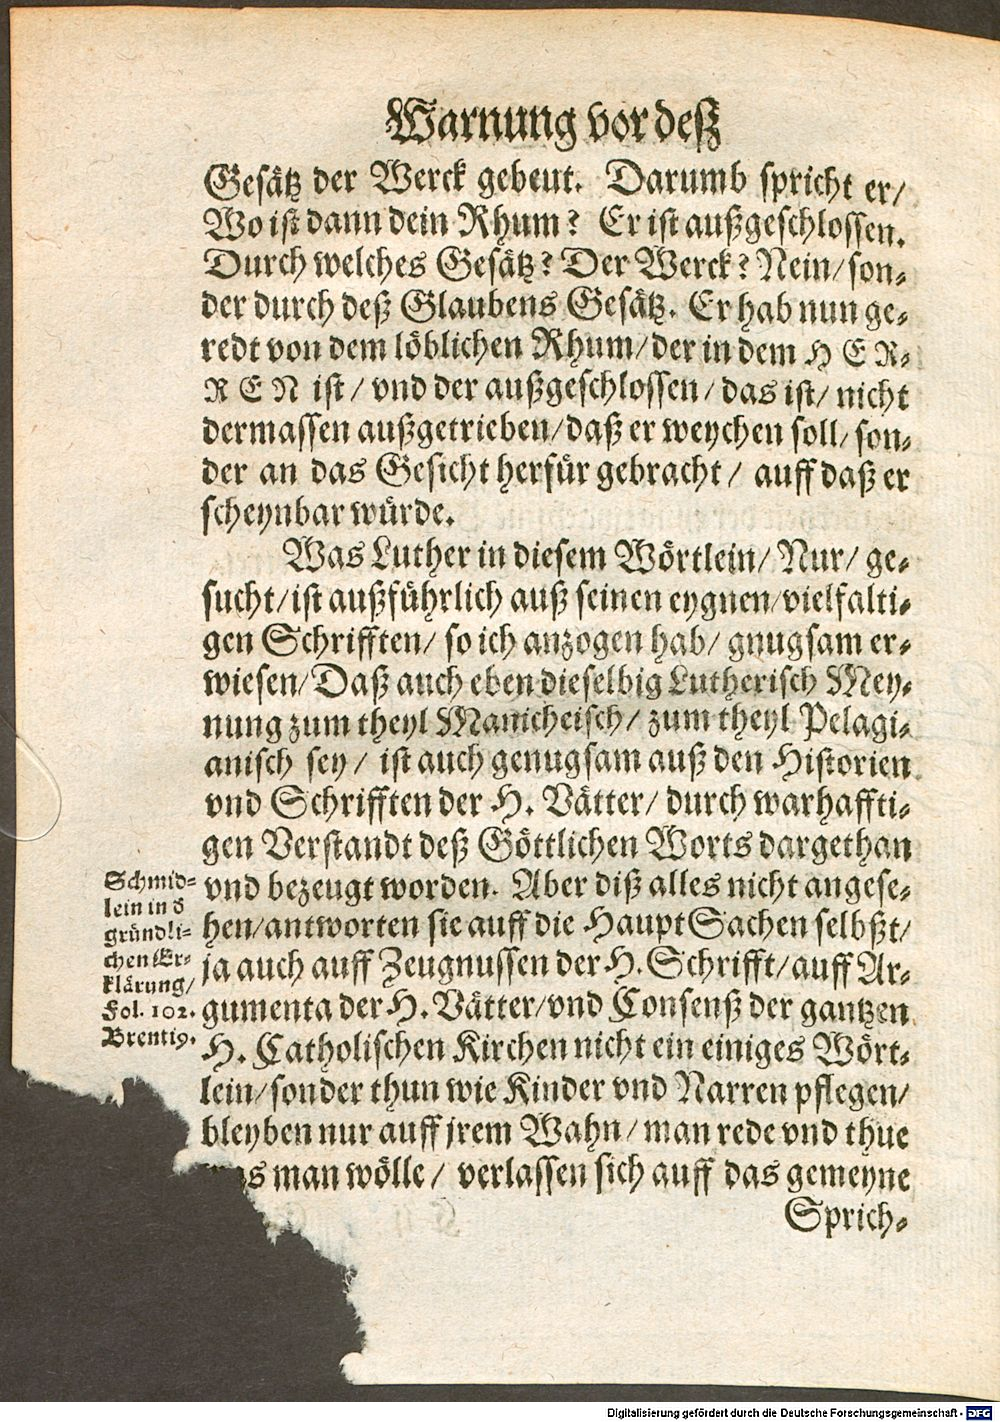 Warnung vor deß
Gesätz der Werck gebeut. Darumb spricht er/
Wo ist dann dein Rhum? Er ist außgeschlossen.
Durch welches Gesätz? Der Werck? Nein/ son-
der durch deß Glaubens Gesätz. Er hab nun ge-
redt von dem löblichen Rhum/ der in dem HER-
REN ist/ vnd der außgeschlossen/ das ist/ nicht
dermassen außgetrieben/ daß er weychen soll/ son-
der an das Gesicht herfür gebracht/ auff daß er
scheynbar würde.
Was Luther in diesem Wörtlein/ Nur/ ge-
sucht/ ist außführlich auß seinen eygnen/ vielfalti-
gen Schrifften/ so ich anzogen hab/ gnugsam er-
wiesen/ Daß auch eben dieselbig Lutherisch Mey-
nung zum theyl Manicheisch/ zum theyl Pelagi-
anisch sey/ ist auch genugsam auß den Historien
vnd Schrifften der H. Vätter/ durch warhaffti-
gen Verstandt deß Göttlichen Worts dargethan
vnd bezeugt worden. Aber diß alles nicht angese-
hen/ antworten sie auff die Haupt Sachen selbßt/
ja auch auff Zeugnussen der H. Schrifft/ auff Ar-
gumenta der H. Vätter/ vnd Consenß der gantzen
H. Catholischen Kirchen nicht ein einiges Wört-
lein/ sonder thun wie Kinder vnd Narren pflegen/
bleyben nur auff jrem Wahn/ man rede vnd thue
man wölle/ verlassen sich auff das gemeyne
Sprich-
Schmid-
lein in d
gründli-
chen Er-
klärung/
Fol. 102.
Brentiꝰ.
Digitalisierung gefördert durch die Deutsche Forschungsgemeinschaft - DFG